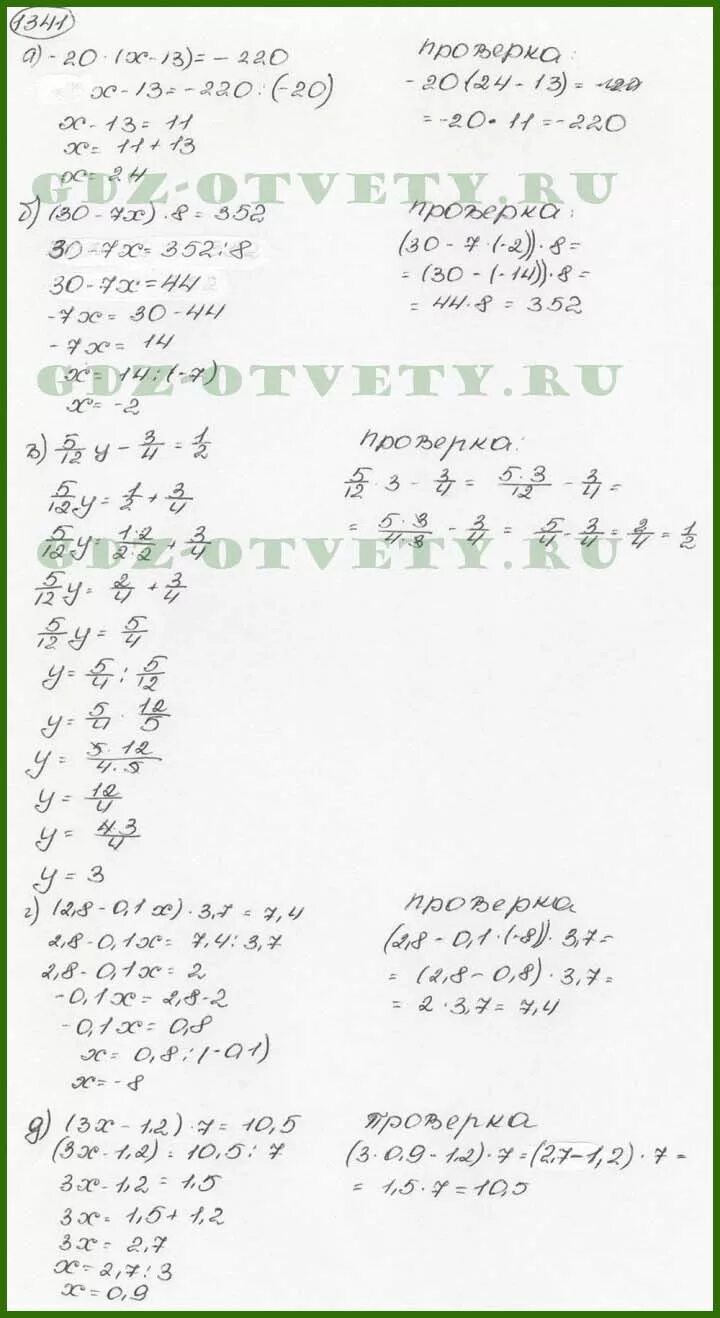 1341
а) -20 · (x-13) = -220
x-13 = -220 : (-20)
x-13 = 11
x = 11 + 13
x = 24
проверка:
-20(24-13) =
= -20 · 11 = -220
GDZ-OTVETY.RU
б) (30 - 7x) · 8 = 352
30 - 7x = 352 : 8
30 - 7x = 44
-7x = 30 - 44
-7x = 14
x = 14 : (-7)
x = -2
проверка:
(30 - 7 · (-2)) · 8 =
= (30 - (-14)) · 8 =
= 44 · 8 = 352
GDZ-OTVETY.RU
в) 5/12 y - 3/4 = 1/2
5/12 y = 1/2 + 3/4
5/12 y = 1·2/2·2 + 3/4
5/12 y = 2/4 + 3/4
5/12 y = 5/4
y = 5/4 : 5/12
y = 5/4 · 12/5
y = 5·12/4·5
y = 12/4
y = 4·3/4
y = 3
проверка:
5/12 · 3 - 3/4 = 5·3/12 - 3/4 =
= 5·3/4·3 - 3/4 = 5/4 - 3/4 = 2/4 = 1/2
GDZ-OTVETY.RU
г) (2,8 - 0,1x) · 3,7 = 7,4
2,8 - 0,1x = 7,4 : 3,7
2,8 - 0,1x = 2
-0,1x = 2,8 - 2
-0,1x = 0,8
x = 0,8 : (-0,1)
x = -8
проверка
(2,8 - 0,1 · (-8)) · 3,7 =
= (2,8 - 0,8) · 3,7 =
= 2 · 3,7 = 7,4
д) (3x - 1,2) · 7 = 10,5
(3x - 1,2) = 10,5 : 7
3x - 1,2 = 1,5
3x = 1,5 + 1,2
3x = 2,7
x = 2,7 : 3
x = 0,9
Проверка
(3 · 0,9 - 1,2) · 7 = (2,7 - 1,2) · 7 =
= 1,5 · 7 = 10,5